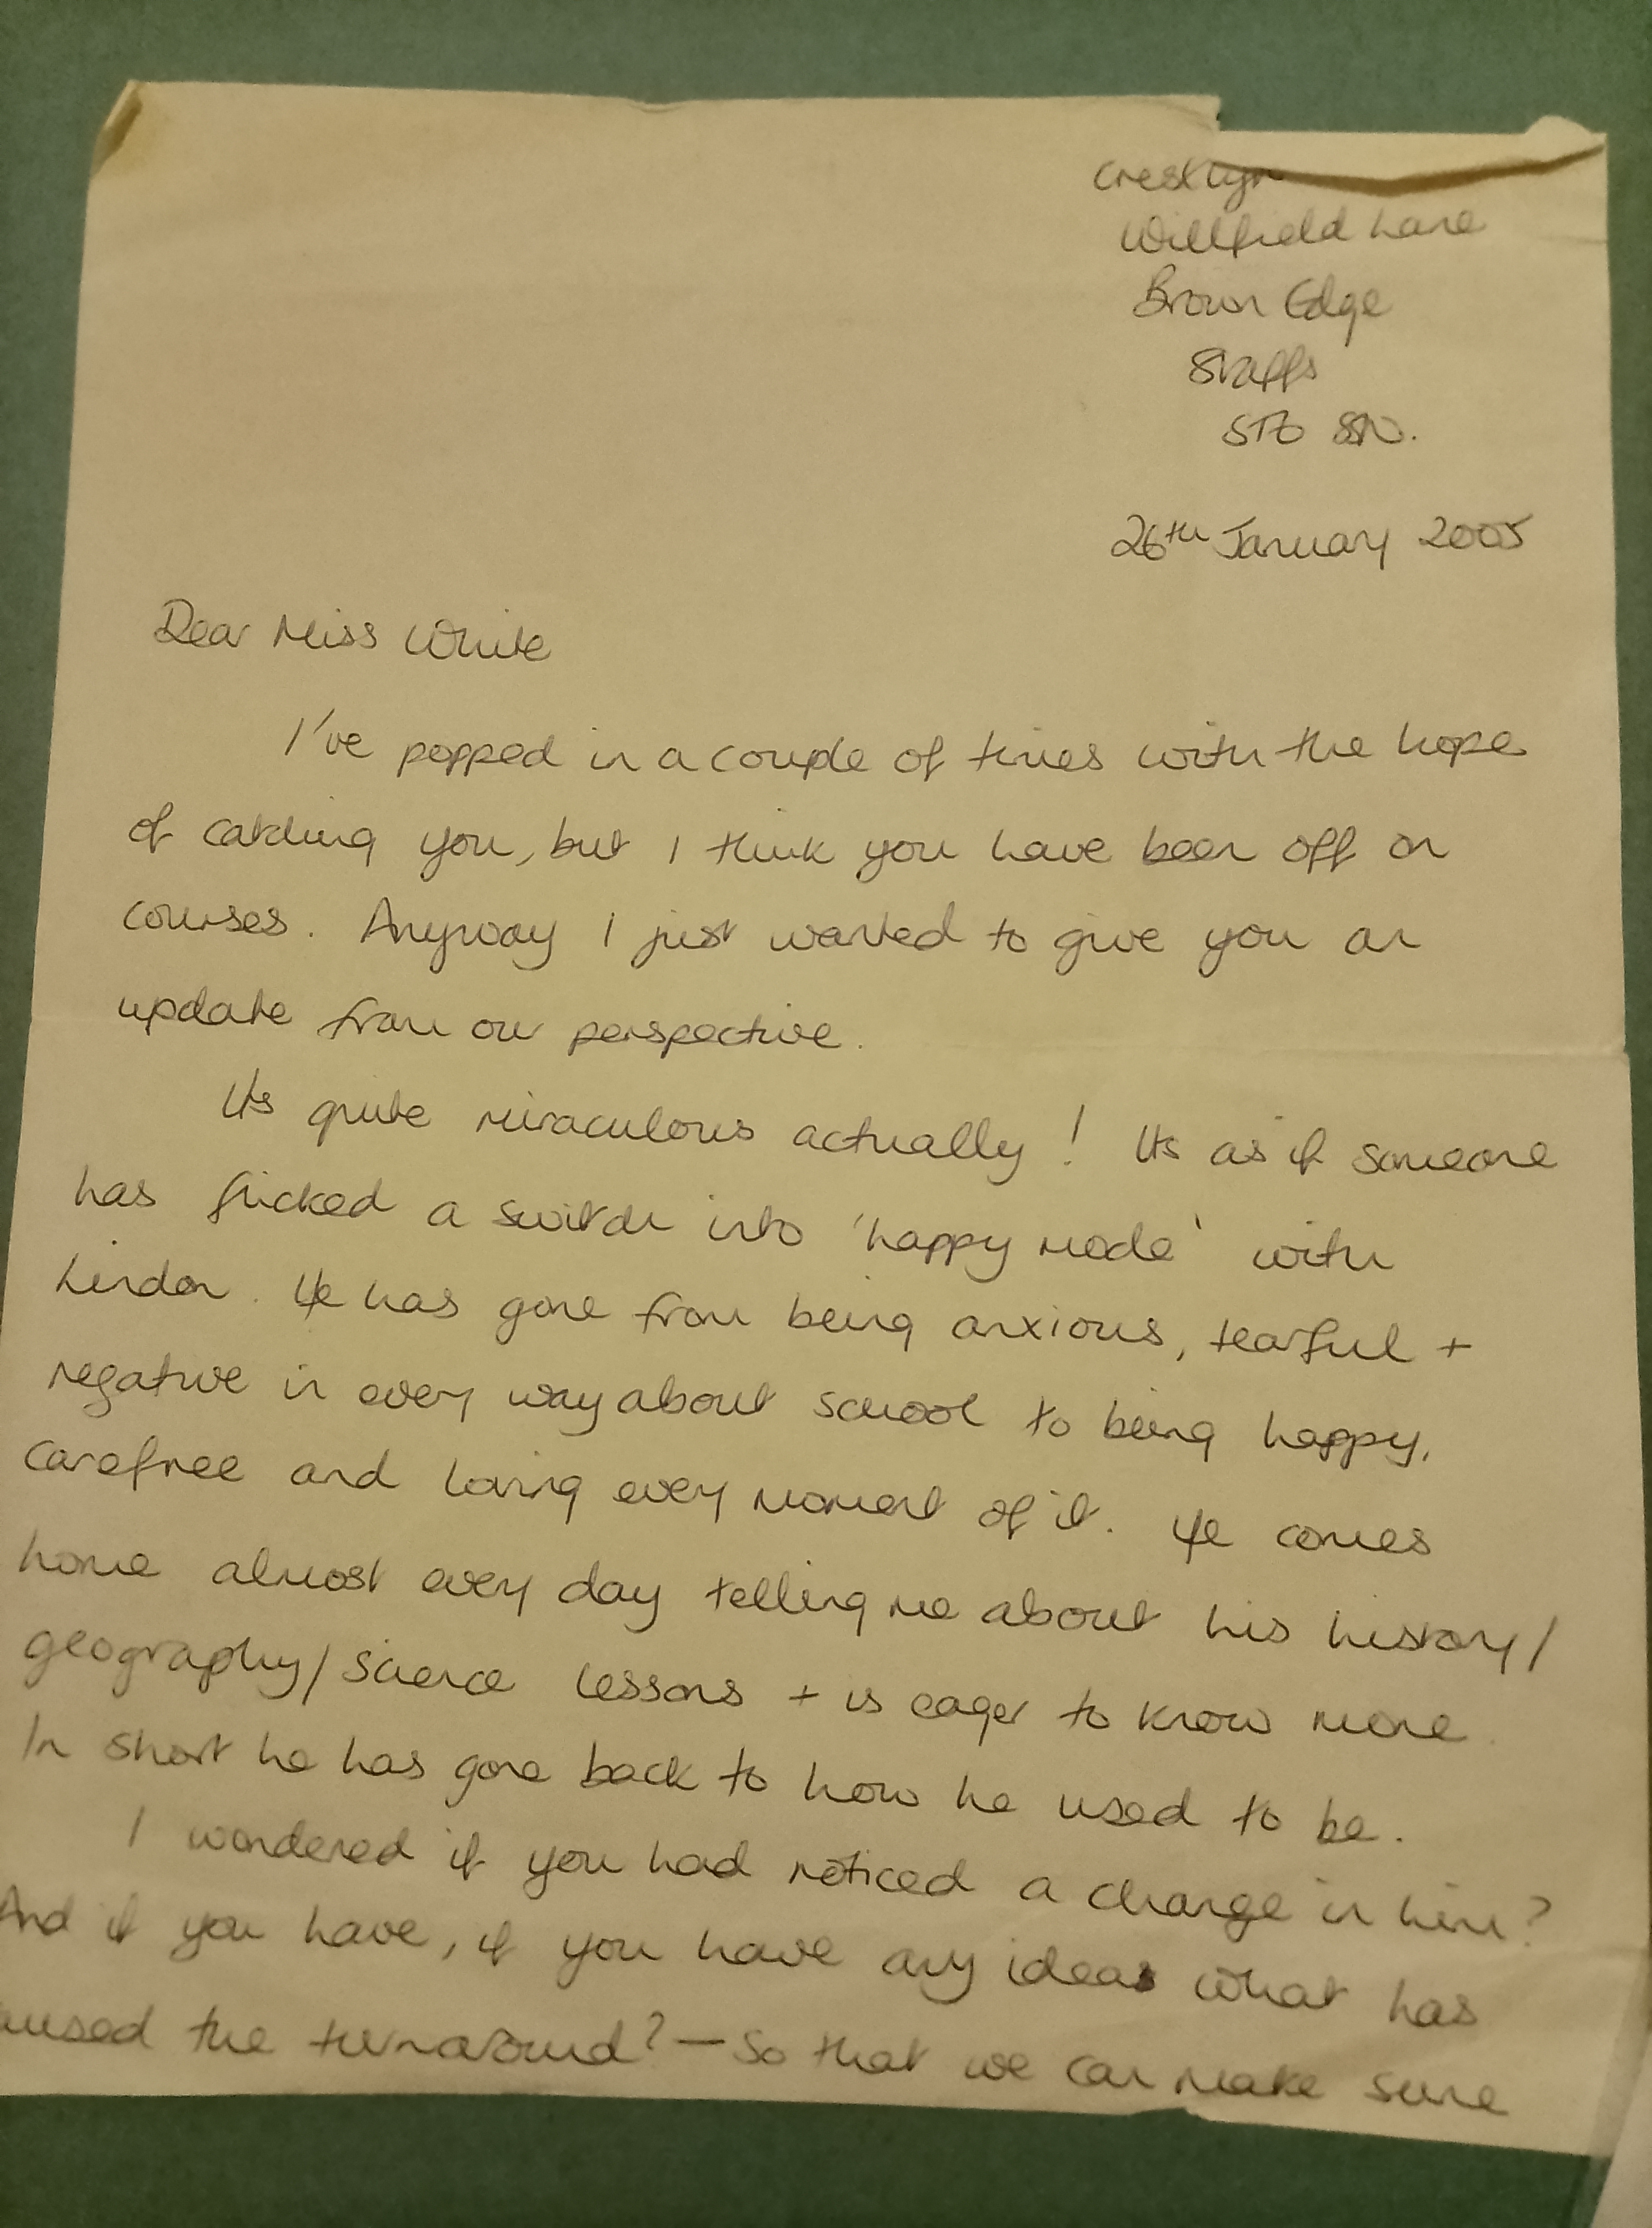 Willfield Lane
Brown Edge
Staffs
26th January 2005
Dear Miss White
I've popped in a couple of times with the hope
of catching you, but I think you have been off on
courses. Anyway I just wanted to give you an
update from our perspective.
Its quite miraculous actually! Its as if someone
has flicked a switch into 'happy mode' with
Lindon. He has gone from being anxious, tearful +
negative in every way about school to being happy,
carefree and loving every moment of it. He comes
home almost every day telling me about his history/
geography/science lessons + is eager to know more.
In short he has gone back to how he used to be.
I wondered if you had noticed a change in him?
And if you have, if you have any ideas what has
the turnaround? — So that we can make sure